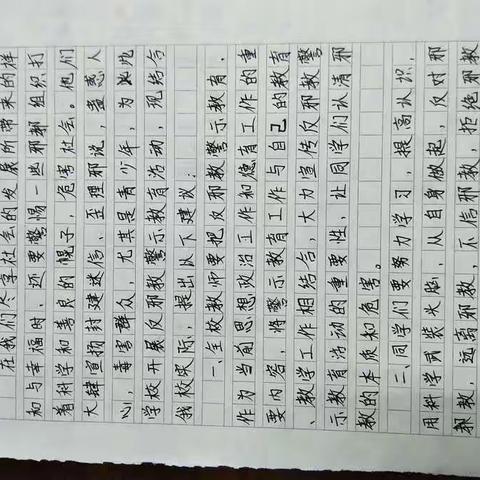 在我们尽享社会的发展所带来的祥
和与幸福时、还要警惕一些邪教组织打
着科学和善良的幌子，危害社会。他们
大肆宣扬封建迷信、歪理邪说，蛊惑人
心，毒害群众，尤其是青少年，为此
学校开展反邪教警示教育活动，现结合
我校实际，提出以下建议：
一、全校教师要把反邪教警示教育，
作为当前思想政治工作和德育工作的重
要内容，将警示教育工作与自己的教育
、教学工作相结合，大力宣传反邪教警
示教育活动的重要性、让同学们认清邪
教的本质和危害。
二、同学们要努力学习，提高认识，
用科学武装头脑，从自身做起，反对邪
教，远离邪教，不信邪教，拒绝邪教